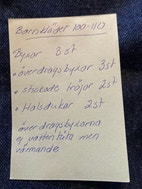 Barnkläder 100-110
Byxor 3 st
• överdragsbyxor 3st
• stickade tröjor 2st
• Halsdukar 2 st
överdragsbyxorna
ej vattentäta men
värmande